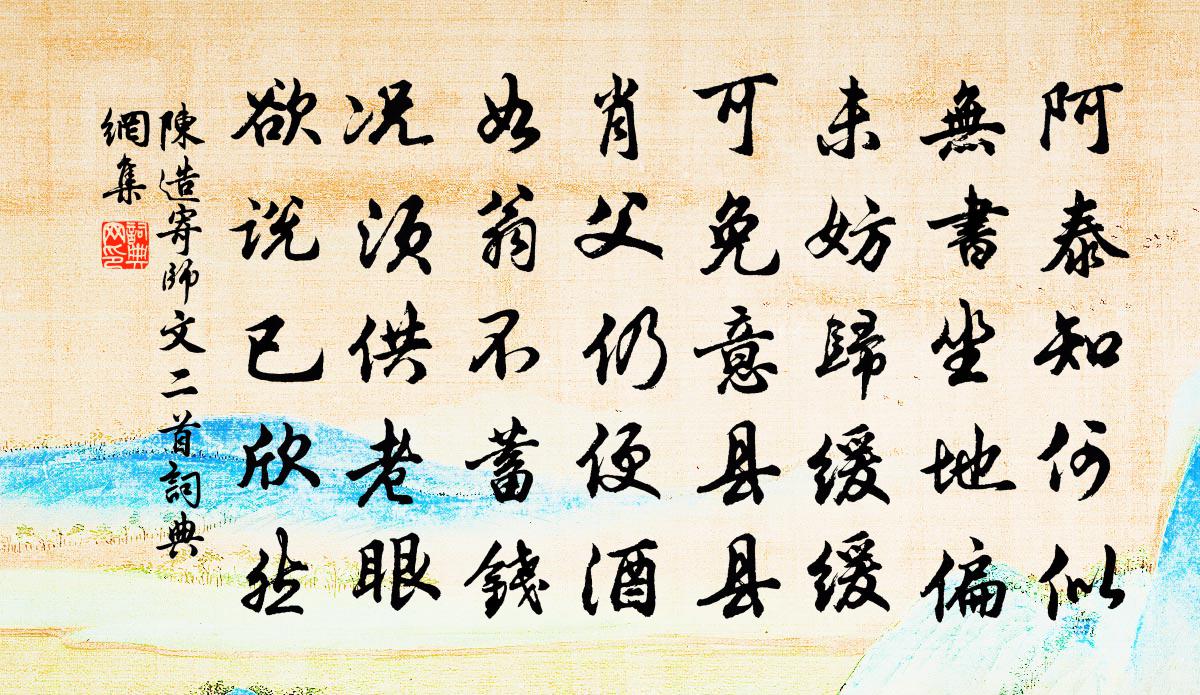 阿泰知何似
無書坐地偏
未妨歸緩緩
可免意县县
肖父仍便酒
如翁不蓄錢
况須供老眼
欲说已欣然
陳造寄師文二首詞典
網集
詞典
网印